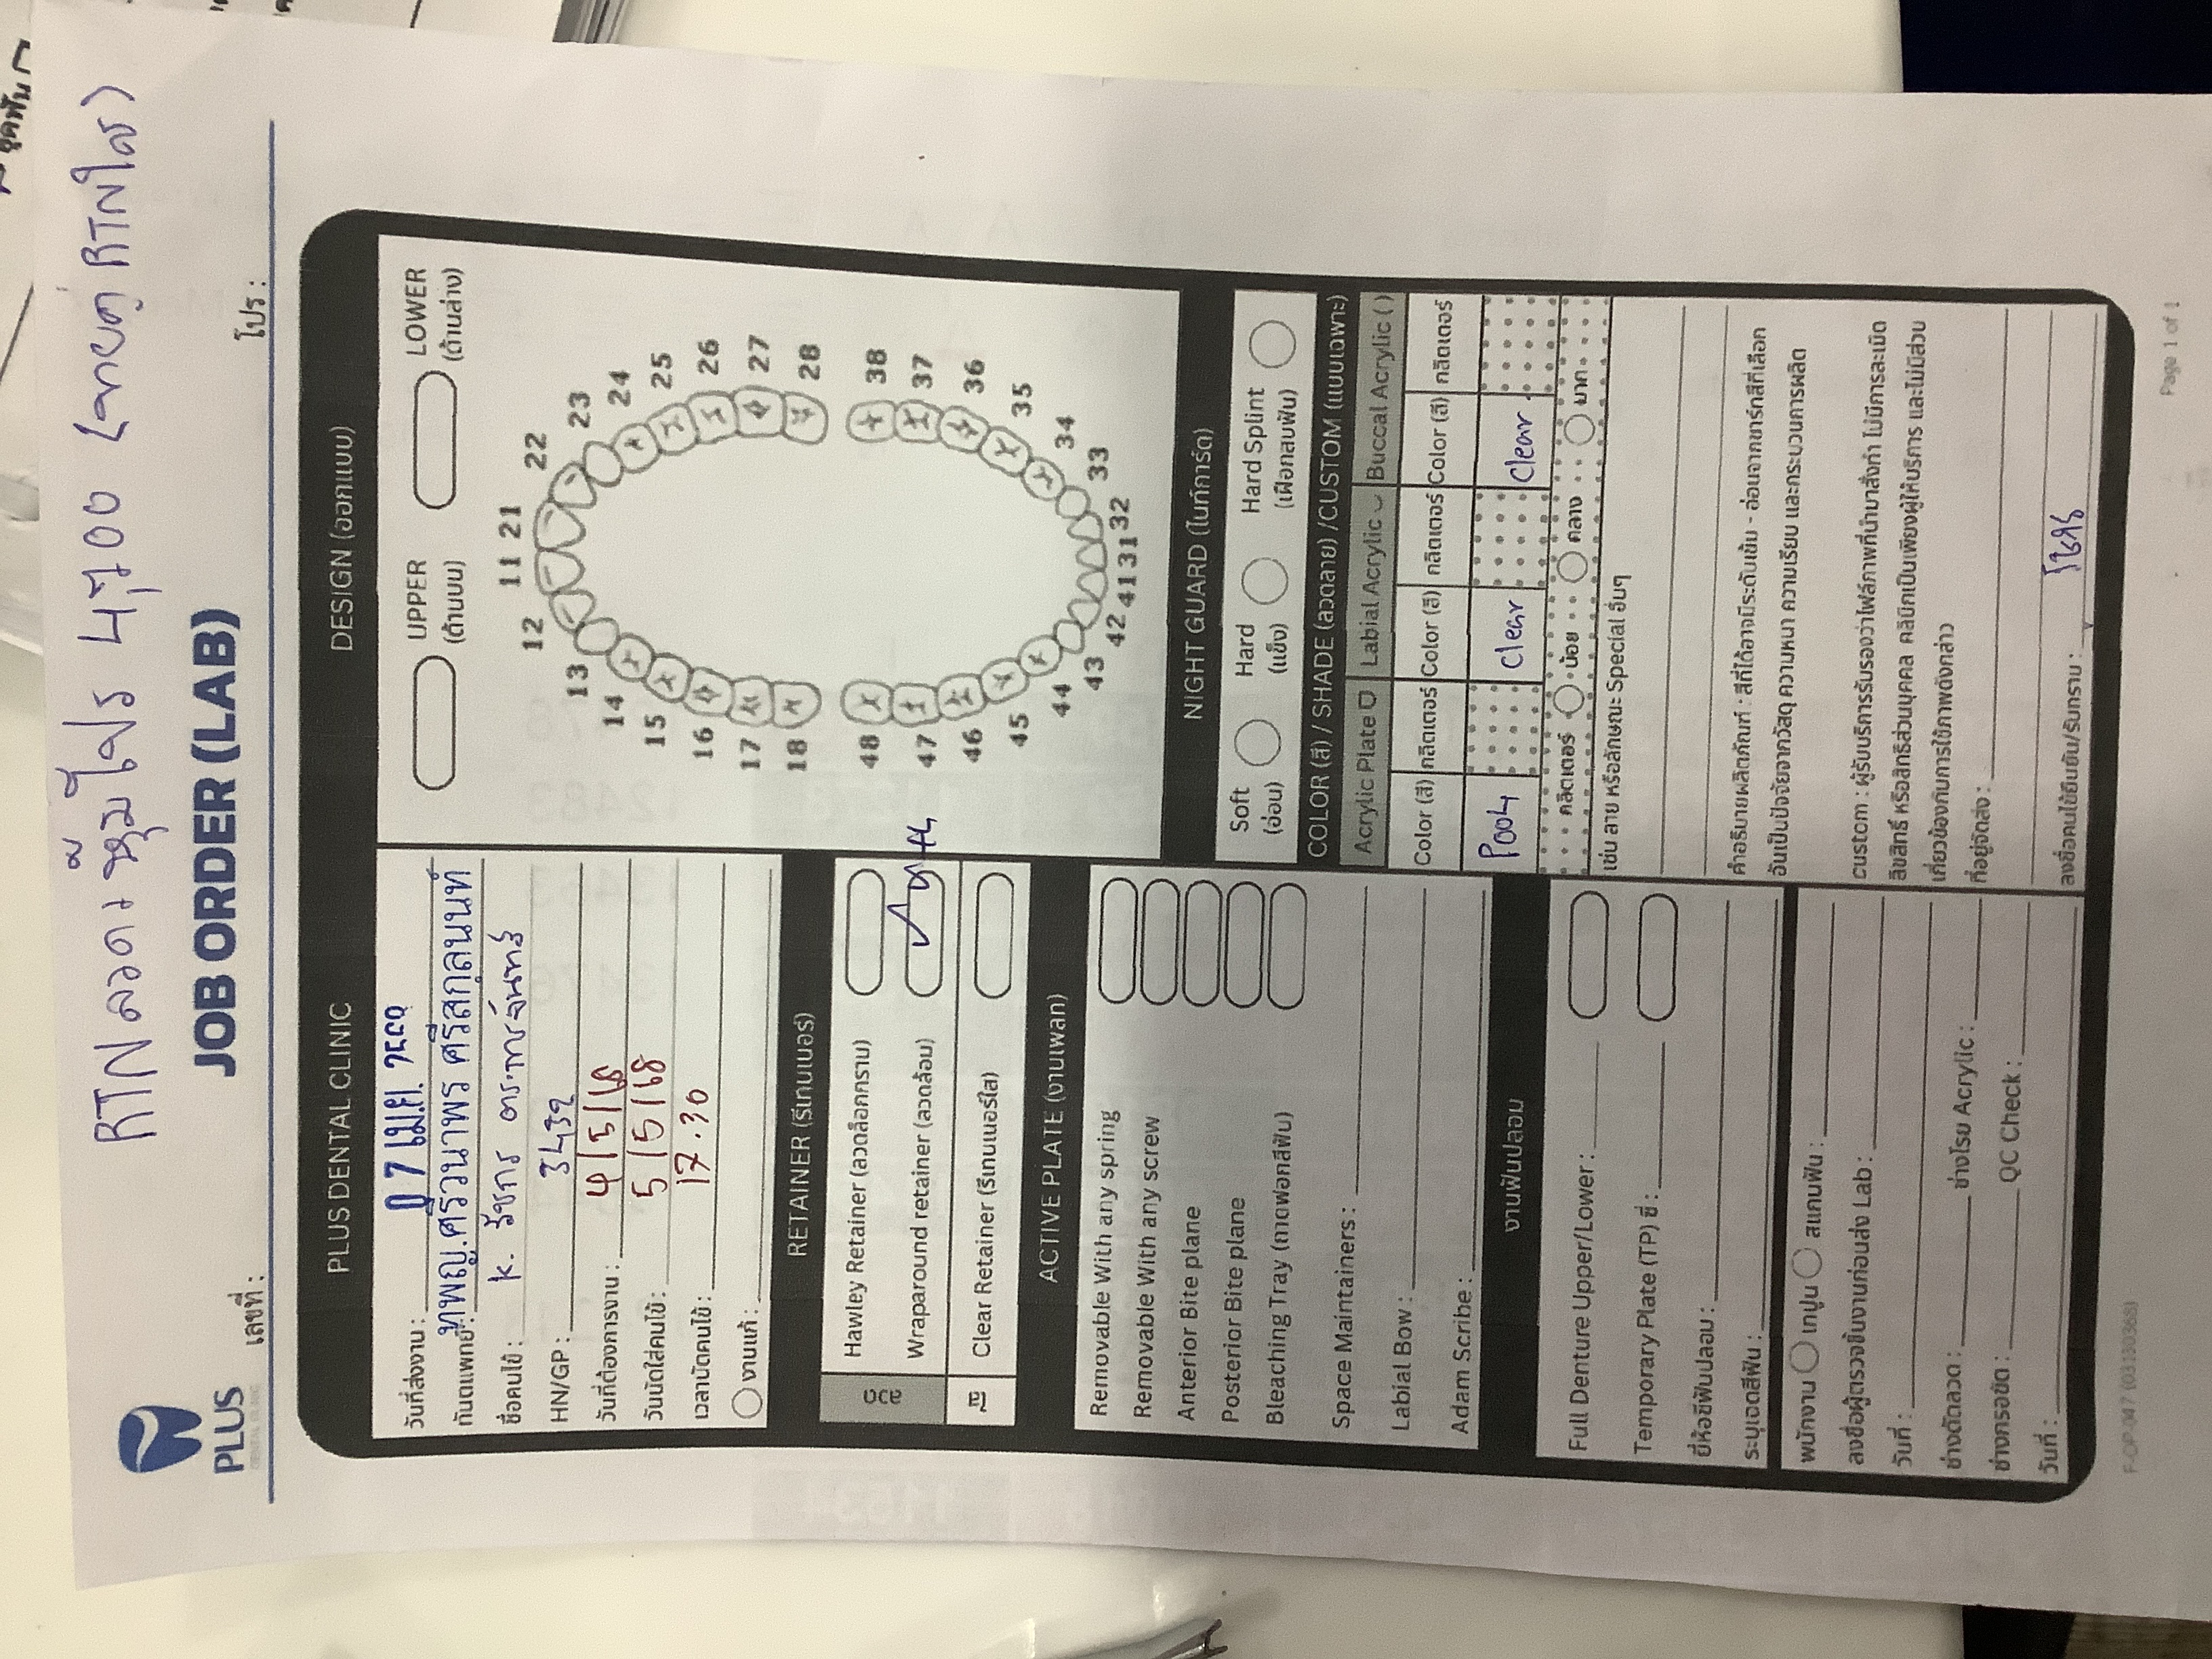 RTN ลวด หุ้มโปร 4,700 (ขายคู่ RTN ใส)
PLUS
DENTAL CLINIC
JOB ORDER (LAB)
เลขที่ :
โปร :
PLUS DENTAL CLINIC
วันที่ส่งงาน : 07 เม.ย. 2568
ทันตแพทย์ : ทพญ.ศรีวนาพร ศรีสกุลนนท์
ชื่อคนไข้ : K.
HN/GP : 3432
วันที่ต้องการงาน : 4/5/68
วันนัดใส่คนไข้ : 5/5/68
เวลานัดคนไข้ : 17.30
งานแก้ :
RETAINER (รีเทนเนอร์)
ลวด
Hawley Retainer (ลวดล็อกกราม)
Wraparound retainer (ลวดล้อม)
ใส
Clear Retainer (รีเทนเนอร์ใส)
ACTIVE PLATE (งานเพลท)
Removable With any spring
Removable With any screw
Anterior Bite plane
Posterior Bite plane
Bleaching Tray (ถาดฟอกสีฟัน)
Space Maintainers :
Labial Bow :
Adam Scribe :
งานฟันปลอม
Full Denture Upper/Lower :
Temporary Plate (TP) ซี่ :
ยี่ห้อซี่ฟันปลอม :
ระบุเฉดสีฟัน :
พนักงาน เทปูน สแกนฟัน :
ลงชื่อผู้ตรวจชิ้นงานก่อนส่ง Lab :
วันที่ :
ช่างดัดลวด : ช่างโรย Acrylic :
ช่างกรอขัด : QC Check :
วันที่ :
DESIGN (ออกแบบ)
UPPER (ด้านบน) LOWER (ด้านล่าง)
11 21
12 22
13 23
14 24
15 25
16 26
17 27
18 28
48 38
47 37
46 36
45 35
44 34
43 33
42 41 31 32
NIGHT GUARD (ไนท์การ์ด)
Soft (อ่อน) Hard (แข็ง) Hard Splint (เฝือกสบฟัน)
COLOR (สี) / SHADE (ลวดลาย) /CUSTOM (แบบเฉพาะ)
Acrylic Plate Labial Acrylic Buccal Acrylic ( )
Color (สี) กลิตเตอร์ Color (สี) กลิตเตอร์ Color (สี) กลิตเตอร์
P004 Clear Clear
กลิตเตอร์ น้อย กลาง มาก
เช่น ลาย หรือลักษณะ Special อื่นๆ
คำอธิบายผลิตภัณฑ์ : สีที่ได้อาจมีระดับเข้ม - อ่อนจากชาร์ทสีที่เลือก
อันเป็นปัจจัยจากวัสดุ ความหนา ความเรียบ และกระบวนการผลิต
custom : ผู้รับบริการรับรองว่าไฟล์ภาพที่นำมาสั่งทำ ไม่มีการละเมิด
ลิขสิทธิ์ หรือสิทธิส่วนบุคคล คลินิกเป็นเพียงผู้ให้บริการ และไม่มีส่วน
เกี่ยวข้องกับการใช้ภาพดังกล่าว
ที่อยู่จัดส่ง :
ลงชื่อคนไข้ยืนยัน/รับทราบ :
F-OP-047 (03130368)
Page 1 of 1